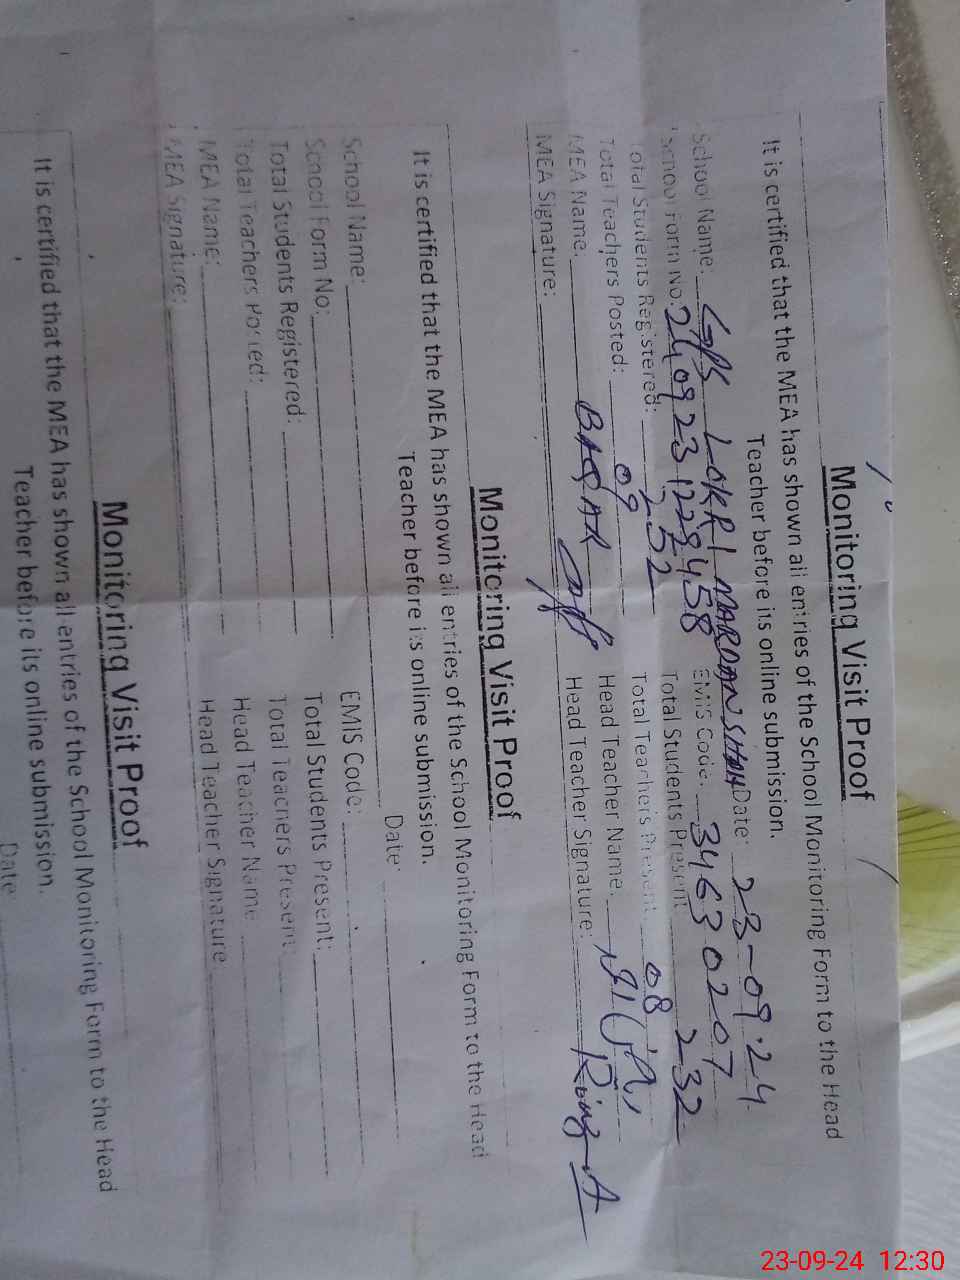 Monitoring Visit Proof
It is certified that the MEA has shown all entries of the School Monitoring Form to the Head
Teacher before its online submission.
School Name: GPS LOKRI MARDAN SHAH Date: 23-09-24
School Form No: 240923122458 EMIS Code: 34630207
Total Students Registered: 252 Total Students Present 232
Total Teachers Posted: 09 Total Teachers Present 08
MEA Name: BAQAR Head Teacher Name:
MEA Signature: Head Teacher Signature:
Monitoring Visit Proof
It is certified that the MEA has shown all entries of the School Monitoring Form to the Head
Teacher before its online submission.
Date:
School Name: EMIS Code:
School Form No: Total Students Present:
Total Students Registered: Total Teachers Present:
Total Teachers Posted: Head Teacher Name
MEA Name: Head Teacher Signature
MEA Signature:
Monitoring Visit Proof
It is certified that the MEA has shown all entries of the School Monitoring Form to the Head
Teacher before its online submission.
Date
23-09-24 12:30